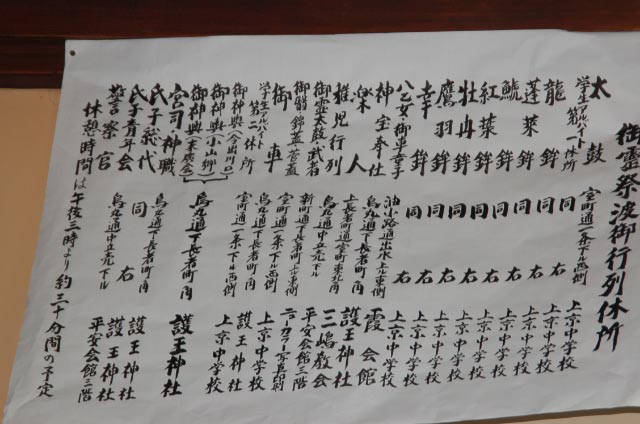 御霊祭渡御行列休所
太鼓
学生アルバイト第一休所 室町通一条下ル西側 上京中学校
龍鉾 同右 上京中学校
蓬莱鉾 同右 上京中学校
鯱鉾 同右 上京中学校
紅葉鉾 同右 上京中学校
牡丹鉾 同右 上京中学校
鷹羽鉾 同右 上京中学校
幸鉾 同右 上京中学校
八乙女・御車幸子 同右 上京中学校
神宝奉仕 油小路通出水上ル東側 霞会館
楽人 烏丸通下長者町角 護王神社
稚児行列 上長者町通室町東北角 三嶋教会
御霊太鼓・武者 烏丸通中立売下ル 平安会館二階
御翳・錦蓋・菅蓋 新町通下長者町上ル東側
御車 室町通一条下ル西側 上京中学校
学生アルバイト第二休所 烏丸通下長者町角 護王神社
御神輿(今出川口) 室町通一条下ル西側 上京中学校
御神輿(小山郷)
御神輿(末廣会) 烏丸通下長者町角 護王神社
宮司・神職
氏子総代 烏丸通下長者町角 護王神社
氏子青年会 同右 護王神社
警察官 烏丸通中立売下ル 平安会館二階
休憩時間は午後三時より約三十分間の予定